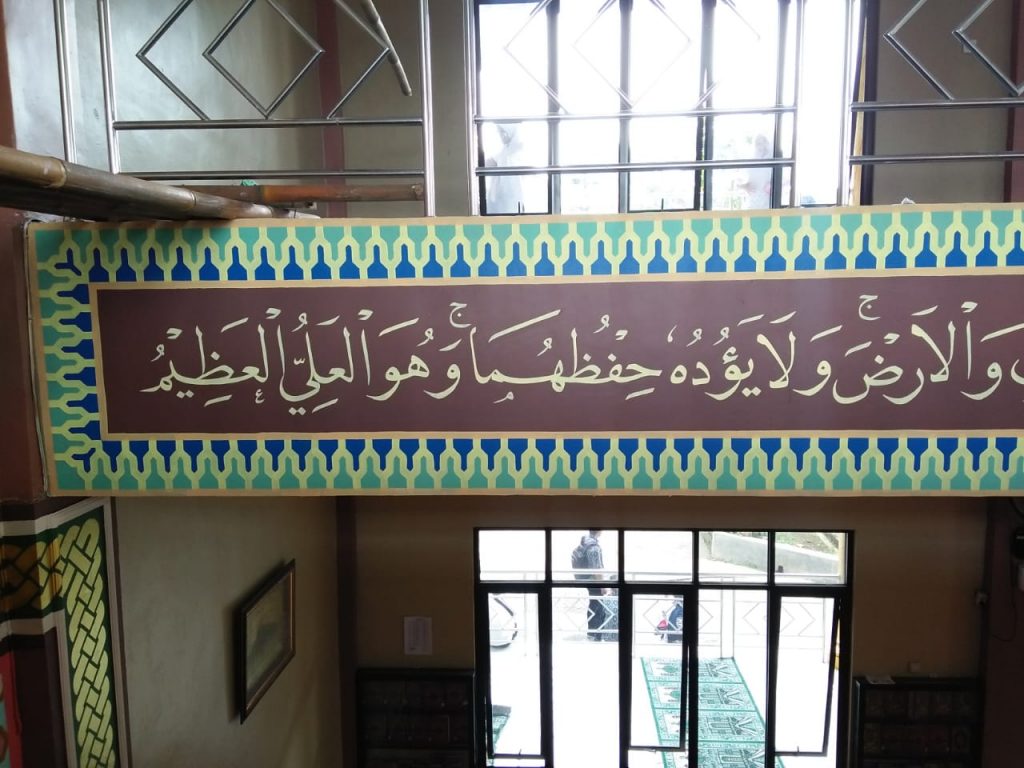 وَالْاَرْضَ ۚ وَلَا يَؤُدُهٗ حِفْظُهُمَا ۚ وَهُوَ الْعَلِيُّ الْعَظِيْمُ